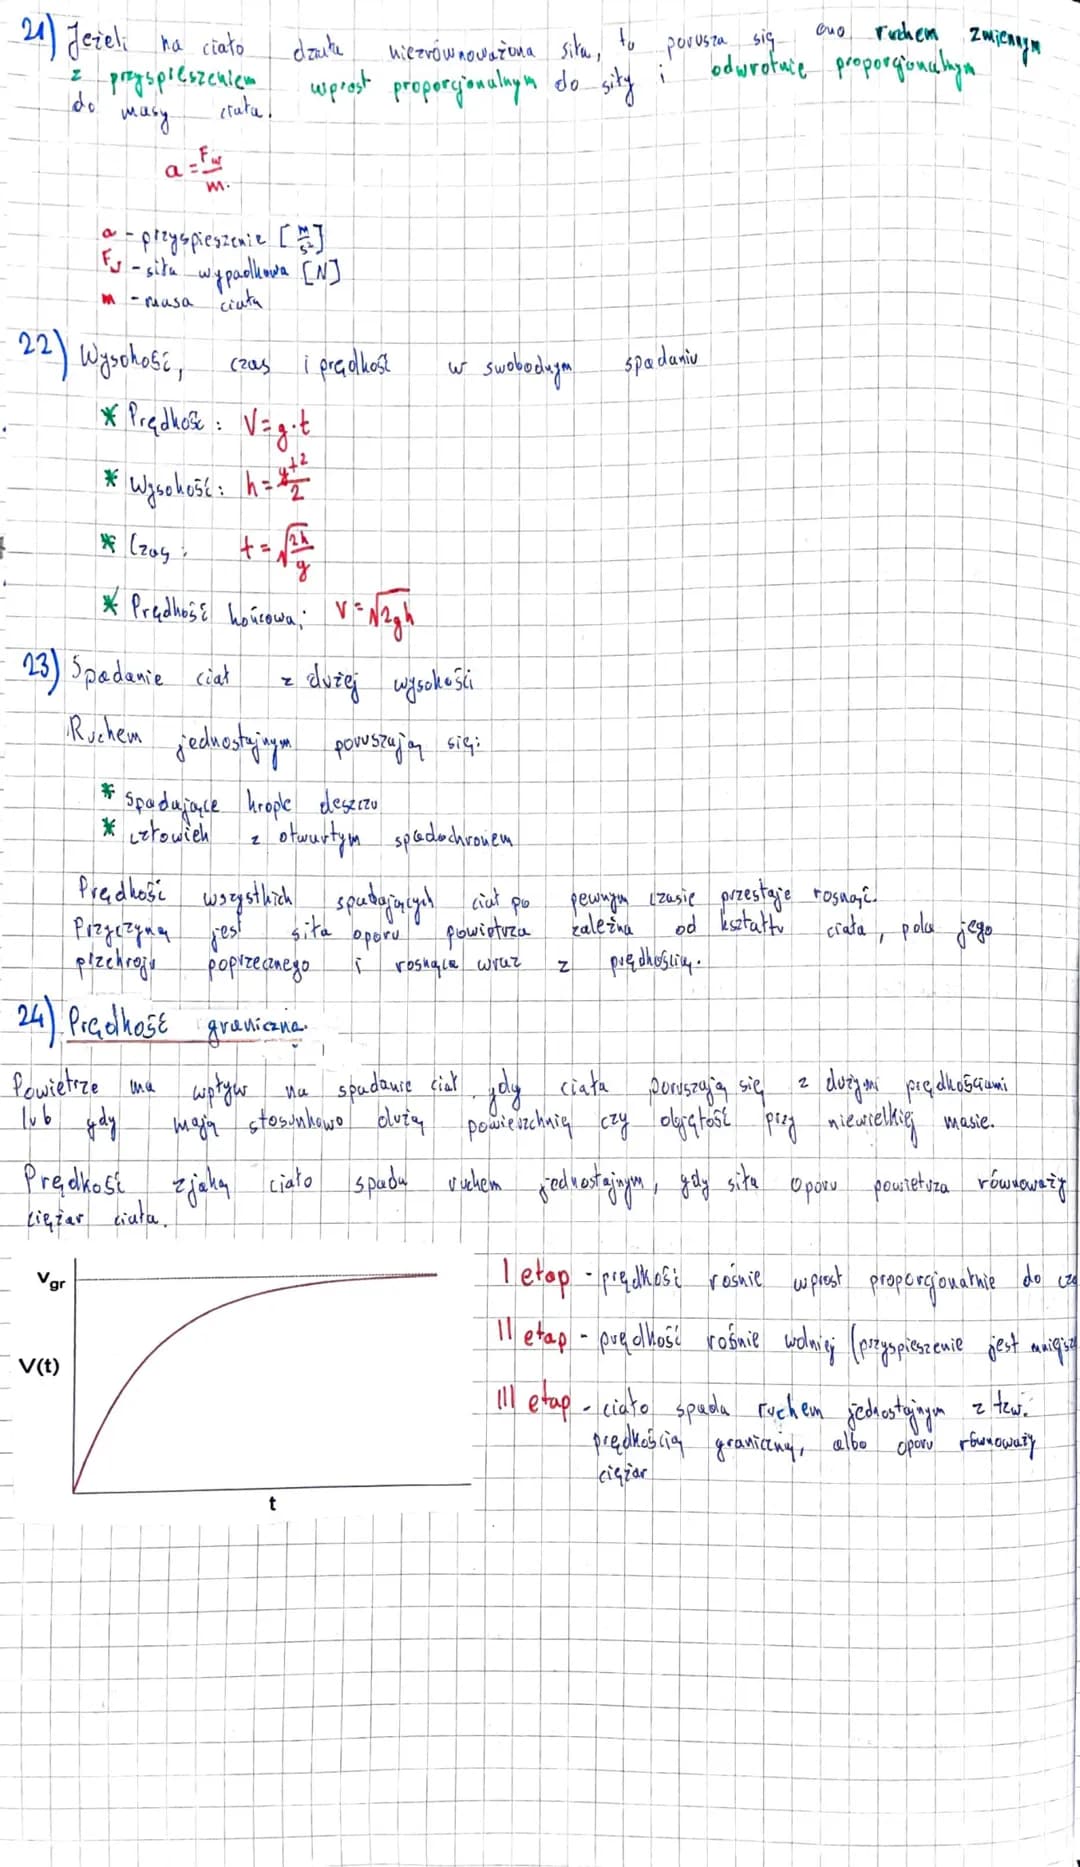 21) Jeżeli na ciało działa niezrównoważona siła, to porusza się ono ruchem zmiennym
z przyspieszeniem wprost proporcjonalnym do siły i odwrotnie proporcjonalnym
do masy ciała.
a = Fw/m.
a - przyspieszenie [m/s²]
Fw - siła wypadkowa [N]
m - masa ciała
22) Wysokość, czas i prędkość w swobodnym spadaniu
* Prędkość: V = g·t
* Wysokość: h = gt²/2
* Czas: t = √(2h/g)
* Prędkość końcowa: V = √2gh
23) Spadanie ciał z dużej wysokości
Ruchem jednostajnym poruszają się:
* Spadające krople deszczu
* człowiek z otwartym spadochronem
Prędkość wszystkich spadających ciał po pewnym czasie przestaje rosnąć.
Przyczyną jest siła oporu powietrza zależna od kształtu ciała, pola jego
przekroju poprzecznego i rosnąca wraz z prędkością.
24) Prędkość graniczna.
Powietrze ma wpływ na spadanie ciał, gdy ciała poruszają się z dużymi prędkościami
lub gdy mają stosunkowo dużą powierzchnię czy objętość przy niewielkiej masie.
Prędkość z jaką ciało spada ruchem jednostajnym, gdy siła oporu powietrza równoważy
ciężar ciała.
Vgr
V(t)
t
I etap - prędkość rośnie wprost proporcjonalnie do cza
II etap - prędkość rośnie wolniej (przyspieszenie jest mniejsz
III etap - ciało spada ruchem jednostajnym z tzw.
prędkością graniczną, albo oporu równoważy
ciężar